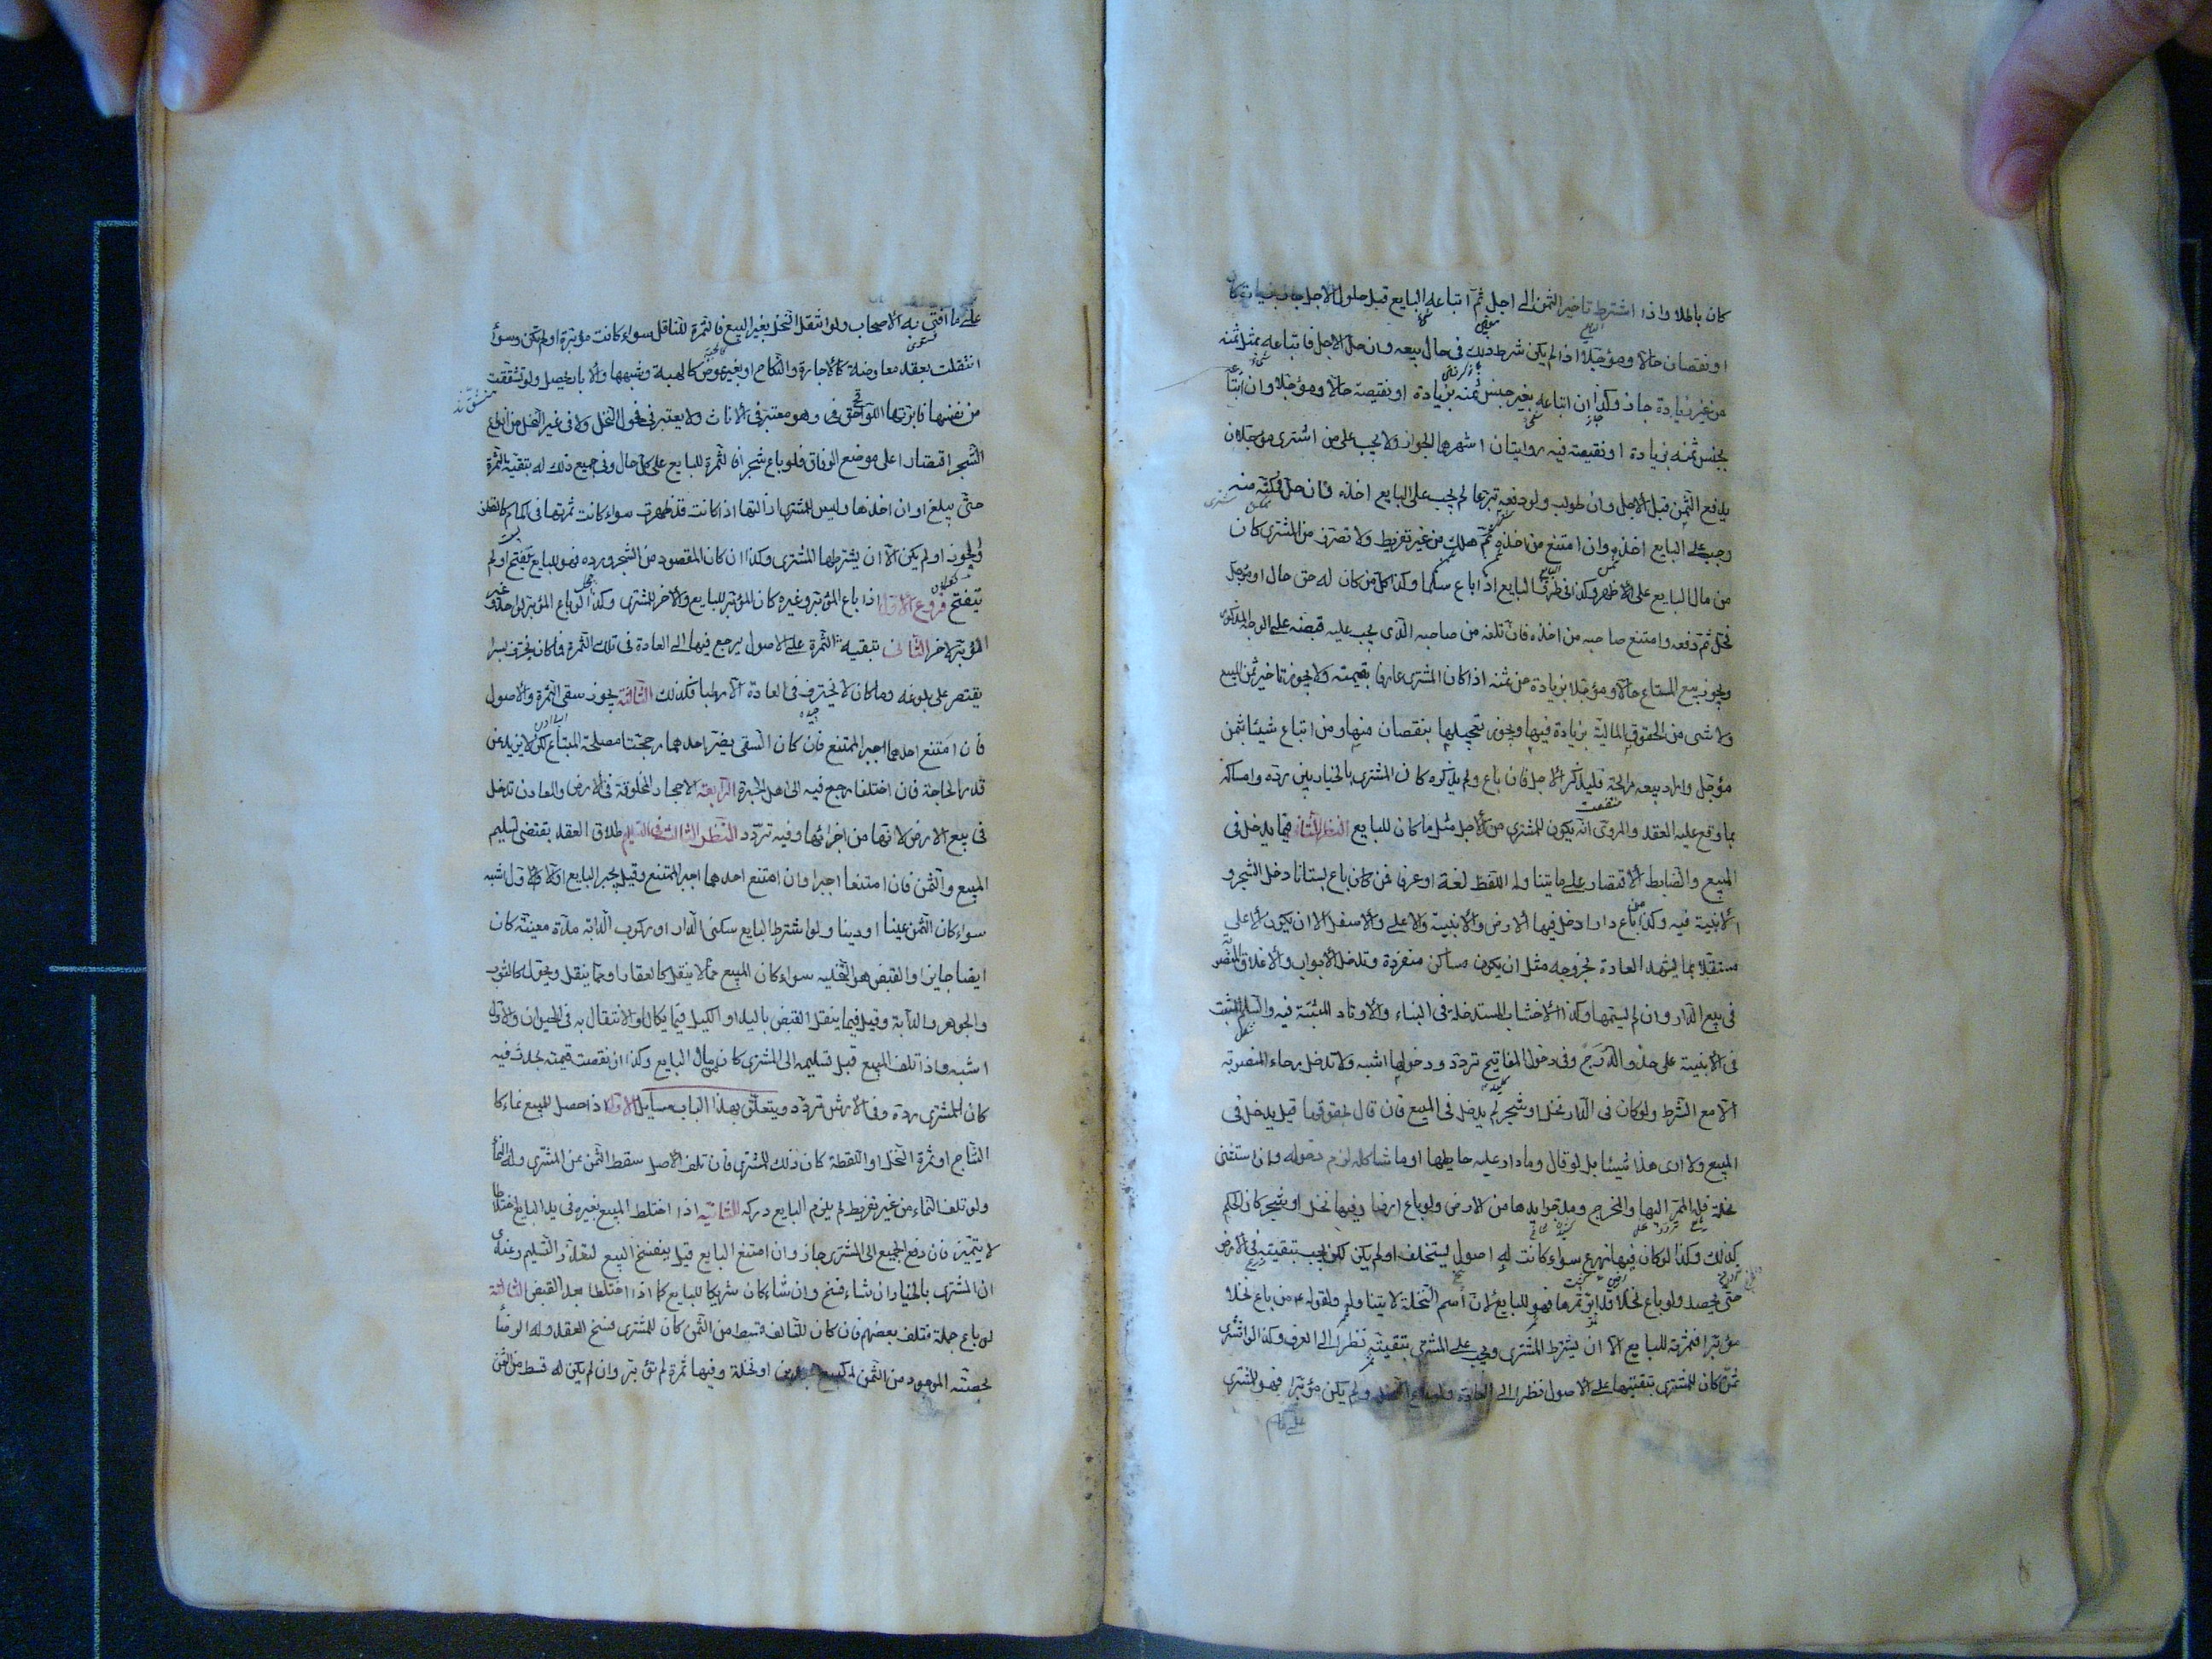 كان باطلا واذا اشترط تاخير الثمن الى اجل ثم ابتاعه البايع قبل حلول الاجل جاز بزيادة كان
او نقصان حالا ومؤجلا اذا لم يكن شرط ذلك فى حال بيعه وان حل الاجل فابتاعه بمثل ثمنه
من غير زيادة جاز وكذا ان ابتاعه بغير جنس ثمنه بزيادة او نقيصة حالا ومؤجلا وان ابتاعه
بجنس ثمنه بزيادة او نقيصة فيه روايتان اشهرهما الجواز ولا يجب على من اشترى مؤجلا ان
يدفع الثمن قبل الاجل وان طولب ولو دفعه تبرعا لم يجب على البايع اخذه فان حل فمكنه منه
وجب على البايع اخذه وان امتنع من اخذه ثم هلك من غير تفريط ولا تصرف من المشترى كان
من مال البايع على الاظهر وكذا فى طرف البايع اذا باع سلما وكذا كل من كان له حق حال او مؤجل
فحل ثم دفعه وامتنع صاحبه من اخذه فان تلفه من صاحبه الذى يجب عليه قبضه على الوجه المذكور
ويجوز بيع المتاع حالا ومؤجلا بزيادة من ثمنه اذا كان المشترى عارفا بقيمته ولا يجوز تاخير ثمن المبيع
ولا شى من الحقوق المالية بزيادة فيها ويجوز تعجيلها بنقصان منها ومن ابتاع شيئا بثمن
مؤجل واراد بيعه مرابحة فليذكر الاجل فان باع ولم يذكره كان المشترى بالخيار بين رده وامساكه
بما وقع عليه العقد والمروى انه يكون للمشترى من الاجل مثل ما كان للبايع النظر الثانى فيما يدخل فى
المبيع والضابط الاقتصار على ما يتناوله اللفظ لغة او عرفا فمن كان باع بستانا دخل الشجر و
الابنية فيه وكذا من باع دارا دخل فيها الارض والابنية والاعلى والاسفل الا ان يكون الاعلى
مستقلا بما يشهد العادة بخروجه مثل ان يكون مساكن منفردة وتدخل الابواب والاغلاق المنصوبة
فى بيع الدار وان لم يسمها وكذا الاخشاب المستدخلة فى البناء والاوتاد المثبتة فيه والسلم المثبت
فى الابنية على حذو الدرج وفى دخول المفاتيح تردد ودخولها اشبه ولا تدخل برحاء المنصوبة
الا مع الشرط ولو كان فى الدار نخل او شجر لم يدخل فى المبيع فان قال بحقوقها قيل يدخل فى
المبيع ولا ارى هذا شيئا بل لو قال وما دار عليه حايطها او ما شاكله لزم دخوله ولو استثنى
نخلة فله الممر اليها والمخرج ومدى جرايدها من الارض ولو باع ارضا وفيها نخل او شجر كان الحكم
كذلك وكذا لو كان فيها زرع سواء كانت له اصول يستخلف او لم يكن لكن يجب تبقيته فى الارض
حتى يحصد ولو باع نخلا قد ابر ثمرها فهو للبايع لان اسم النخلة لا يتناوله ولقوله ع من باع نخلا
مؤبرا فثمرته للبايع الا ان يشترط المشترى ويجب على المشترى تبقيته نظرا الى العرف وكذا لو اشترى
ثمرة كان للمشترى تبقيتها على الاصول نظرا الى العادة ولو باع النخل ولم يكن مؤبرا فهو للمشترى
على ما
على ما افتى به الاصحاب ولو انتقل النخل بغير البيع فالثمرة للناقل سواء كانت مؤبرة او لم تكن وسوا
انتقلت بعقد معاوضة كالاجارة والنكاح او بغير عوض كالهبة وشبهها والابار يحصل ولو تشققت
من نفسها فابرتها اللواقح وهو معتبر فى الاناث ولا يعتبر فى فحول النخل ولا فى غير النخل من انواع
الشجر اقتصارا على موضع الوفاق فلو باع شجرا فالثمرة للبايع على كل حال وفى جميع ذلك له تبقية الثمرة
حتى يبلغ اوان اخذها وليس للمشترى ازالتها اذا كانت قد ظهرت سواء كانت ثمرتها فى اكمام كالقطن
والجوز او لم يكن الا ان يشترطها المشترى وكذا ان كان المقصود من الشجر ورده فهو للبايع تفتح او لم
يتفتح فروع الاول اذا باع المؤبر وغيره كان المؤبر للبايع والاخر للمشترى وكذا لو باع المؤبر لواحد وغير
المؤبر لاخر الثانى تبقية الثمرة على الاصول يرجع فيها الى العادة فى تلك الثمرة فما كان يخترف بسرا
يقتصر على بلوغه وما كان لا يخترف فى العادة الا رطبا فكذلك الثالثة يجوز سقى الثمرة والاصول
فان امتنع احدهما اجبر الممتنع فان كان السقى يضر احدهما رجحنا مصلحة المبتاع لكن لا يزيد عن
قدر الحاجة فان اختلفا رجع فيه الى اهل الخبرة الرابعة الاحجار المخلوقة فى الارض والمعادن تدخل
فى بيع الارض لانها من اجزائها وفيه تردد النظر الثالث فى التسليم اطلاق العقد يقتضى تسليم
المبيع والثمن فان امتنعا اجبرا وان امتنع احدهما اجبر الممتنع وقيل يجبر البايع اولا والاول اشبه
سواء كان الثمن عينا او دينا ولو اشترط البايع سكنى الدار او ركوب الدابة مدة معينة كان
ايضا جايزا والقبض هو التخلية سواء كان المبيع مما لا ينقل كالعقار او مما ينقل ويحول كالثوب
والجوهر والدابة وقيل فيما ينقل القبض باليد او الكيل فيما يكال او الانتقال به فى الحيوان والاول
اشبه واذا تلف المبيع قبل تسليمه الى المشترى كان من مال البايع وكذا ان نقصت قيمته بحدث فيه
كان للمشترى رده وفى الارش تردد ويتعلق بهذا الباب مسايل الاولى اذا حصل للمبيع نماء كا
النتاج او ثمرة النخل او اللقطة كان ذلك للمشترى فان تلف الاصل سقط الثمن عن المشترى وله النما
ولو تلف النماء من غير تفريط لم يلزم البايع دركه الثانيه اذا اختلط المبيع بغيره فى يد البايع اختلاطا
لا يتميز فان دفع الجميع الى المشترى جاز وان امتنع البايع قيل ينفسخ البيع لتعذر التسليم وعندى
ان المشترى بالخيار ان شاء فسخ وان شاء كان شريكا للبايع كما اذا اختلطا بعد القبض الثالثة
لو باع جملة فتلف بعضهم فان كان للتالف قسط من الثمن كان للمشترى فسخ العقد وله الرضا
بحصته الموجود من الثمن كبيع عبدين او نخلة وفيها ثمرة لم تؤبر وان لم يكن له قسط من الثمن